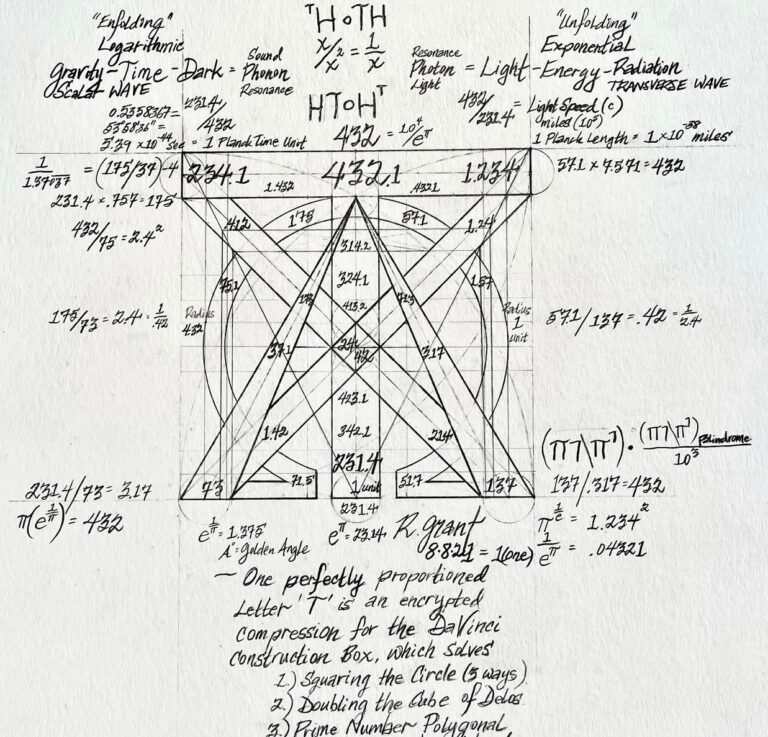 "Enfolding"
Logarithmic
Gravity-Time-Dark = Sound Phonon Resonance
Scalar WAVE
THOTH
x/2/x = 1/x
HTOHT
"Unfolding"
Exponential
Resonance Photon Light = Light-Energy-Radiation
TRANSVERSE WAVE
0.5358367=
5.39 x 10^-44 Sec = 1 Planck Time Unit
231.4/432
432 = 10^4/e^π
432/231.4 = Light Speed (c)
miles (10^5)
1 Planck Length = 1x10^-38 miles
1/1.37037 = (175/37)-4
231.4 x .757=175
432/75 = 2.4^2
57.1 x 7.571=432
234.1
1.432
432.1
.4321
1.234
.412
175
571
1.24
314.2
324.1
413.2
75.1
1.37
173
713
Radius 432
Radius 1 unit
175/73 = 2.4 = 1/.42
571/137 = .42 = 1/2.4
24
42
371
317
423.1
1.42
342.1
214
231.4
1 unit
73
71.5
51.7
137
231.4
231.4/73 = 3.17
π(e^1/π) = 432
(π7\π7) · (π7\π7) Palindrome
10^3
137/.317=432
π^1/e = 1.234^2
1/e^π = .04321
e^1/π = 1.375
A°=Golden Angle
e^π = 23.14
R. Grant
8.8.21 = 1(one)
- One perfectly proportioned
Letter 'T' is an encrypted
compression for the DaVinci
Construction Box, which solves
1.) Squaring the Circle (3 ways)
2.) Doubling the Cube of Delos
3.) Prime Number Polygonal